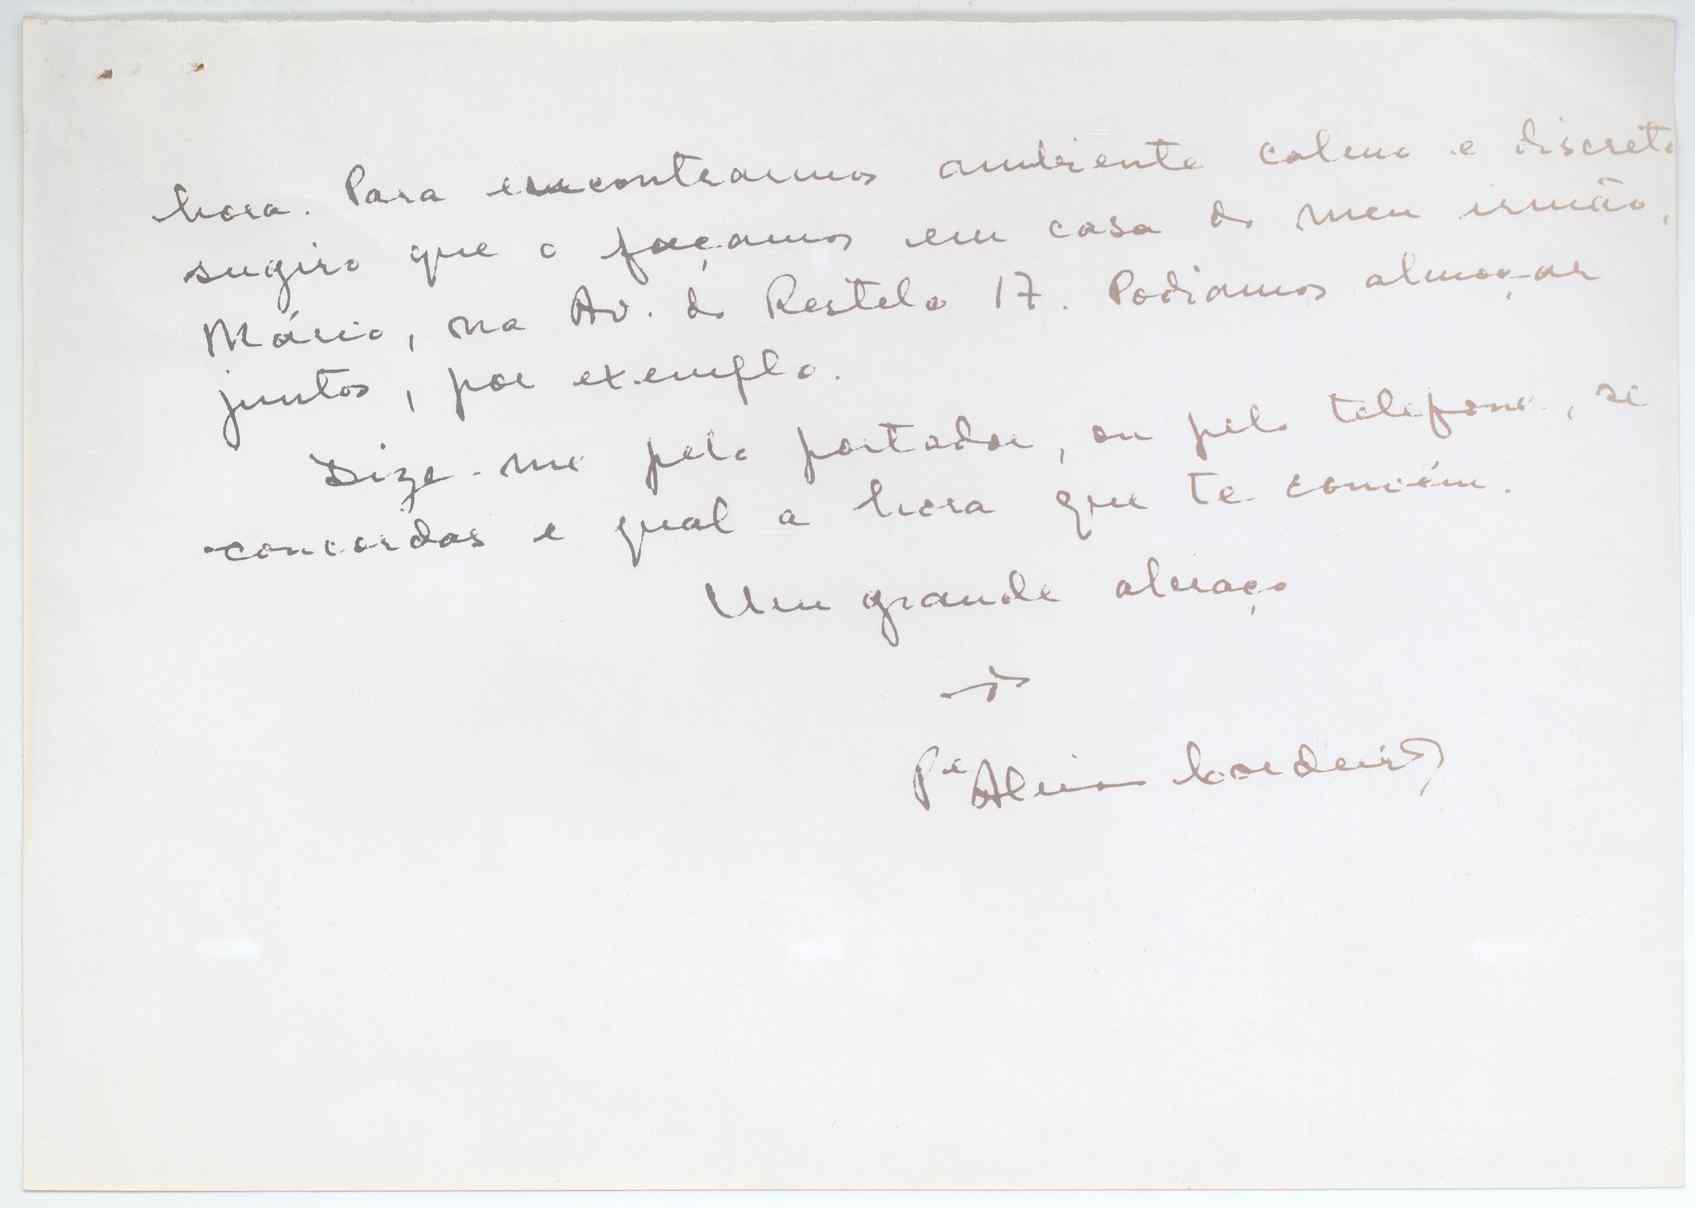 hora. Para encontrarmos ambiente calmo e discreto
sugiro que o façamos em casa do meu irmão,
Mário, na Av. do Restelo 17. Podiamos almoçar
juntos, por exemplo.
Dize-me pelo portador, ou pelo telefone, se
concordas e qual a hora que te convém.
Um grande abraço
Pe Cordeiro